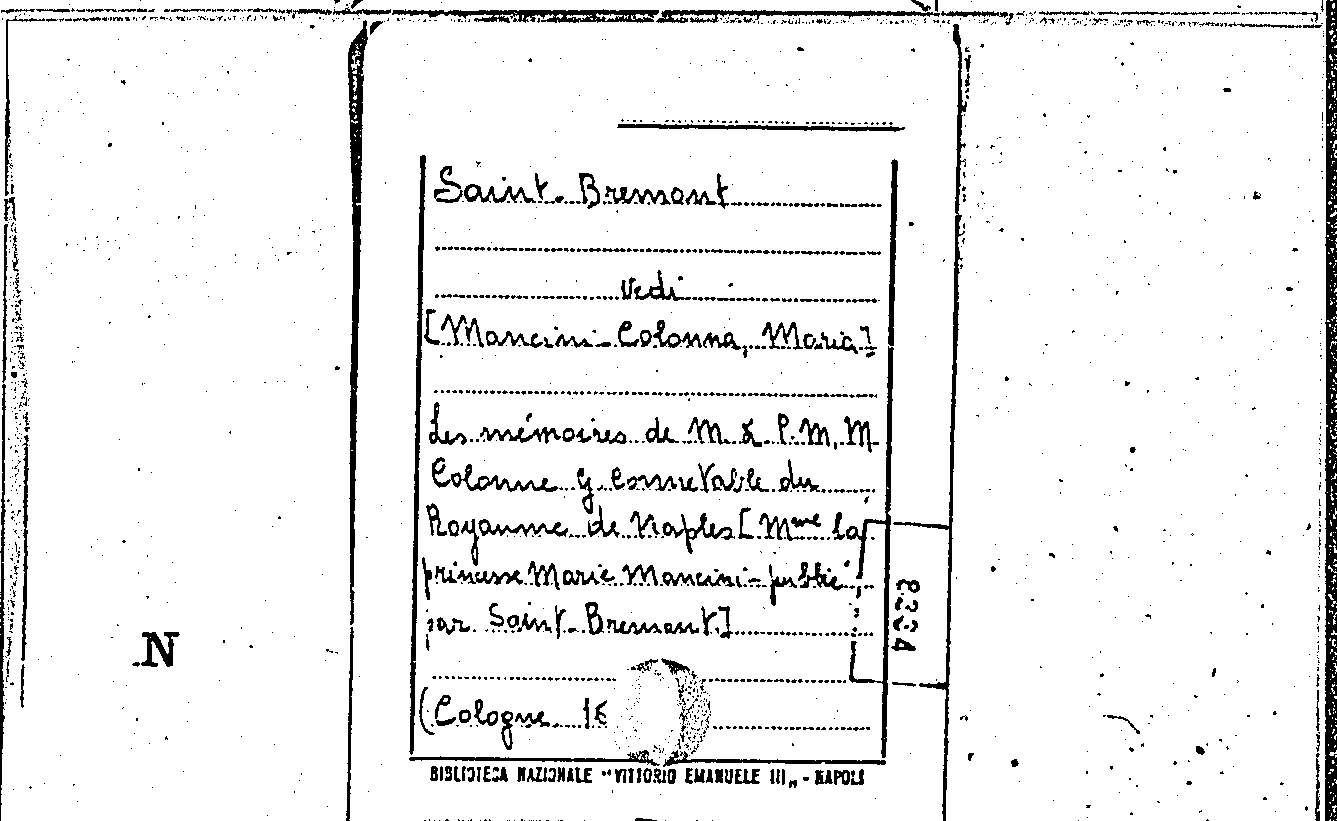 Saint-Bremont
Vedi
[Mancini-Colonna, Maria]
Les mémoires de M. L. P. M. M.
Colonne G. Connetable du
Royaume de Naples [Mme la
princesse Marie Mancini - publié
par Saint-Bremont]
(Cologne 16
BIBLIOTECA NAZIONALE "VITTORIO EMANUELE III" - NAPOLI
8334
N